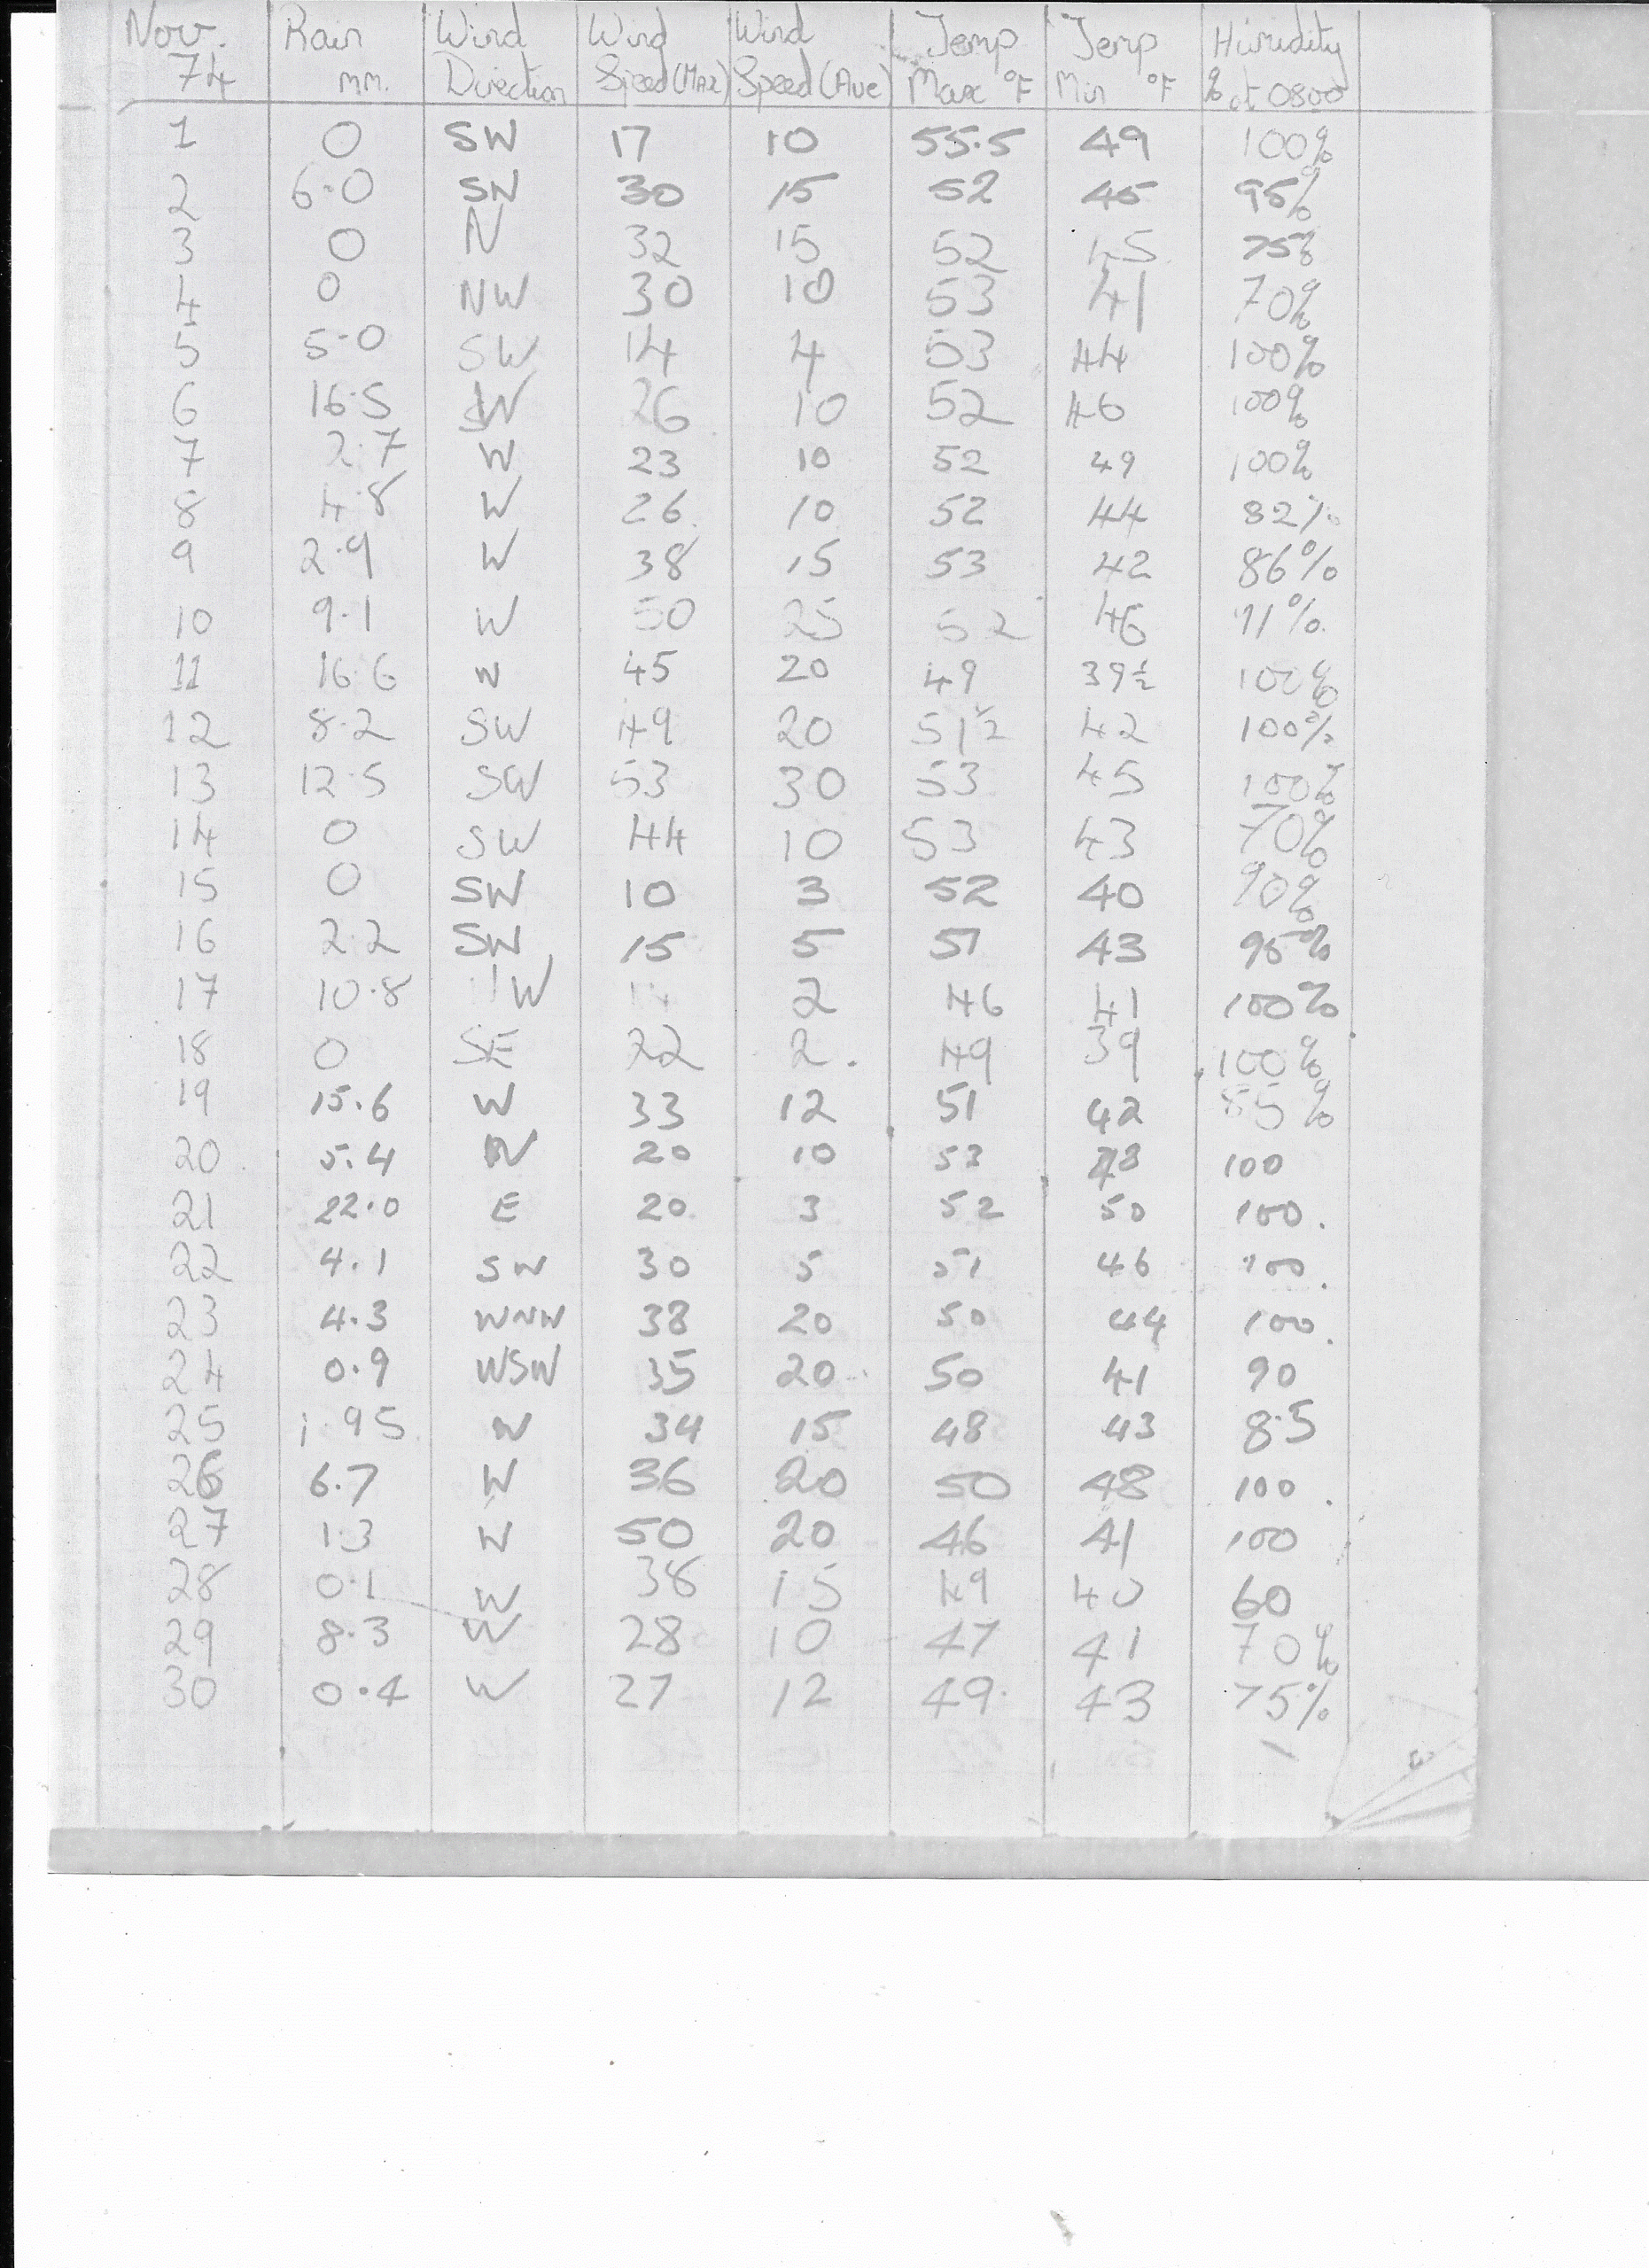 Nov. 74 Rain mm. Wind Direction Wind Speed (Max) Wind Speed (Ave) Temp Max °F Temp Min °F Humidity % at 0800
1 0 SW 17 10 55.5 49 100%
2 6.0 SW 30 15 52 45 95%
3 0 N 32 15 52 45 75%
4 0 NW 30 10 53 41 70%
5 5.0 SW 14 4 53 44 100%
6 16.5 W 26 10 52 46 100%
7 2.7 W 23 10 52 49 100%
8 4.8 W 26 10 52 44 82%
9 2.9 W 38 15 53 42 86%
10 9.1 W 50 25 52 46 91%
11 16.6 W 45 20 49 39½ 100%
12 8.2 SW 49 20 51½ 42 100%
13 12.5 SW 53 30 53 45 100%
14 0 SW 44 10 53 43 70%
15 0 SW 10 3 52 40 90%
16 2.2 SW 15 5 51 43 95%
17 10.8 2 46 41 100%
18 0 SE 22 2. 49 39 100%
19 15.6 W 33 12 51 42 85%
20 5.4 20 10 53 100
21 22.0 E 20 3 52 50 100.
22 4.1 SW 30 5 51 46 100.
23 4.3 WNW 38 20 50 44 100.
24 0.9 WSW 35 20 50 41 90
25 1.95 W 34 15 48 43 8.5
26 6.7 W 36 20 50 48 100.
27 1.3 W 50 20 46 41 100
28 0.1 W 38 15 49 40 60
29 8.3 W 28 10 47 41 70%
30 0.4 W 27 12 49. 43 75%